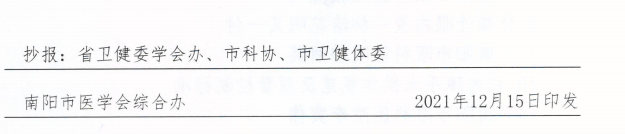 抄报：省卫健委学会办、市科协、市卫健体委
南阳市医学会综合办 2021年12月15日印发